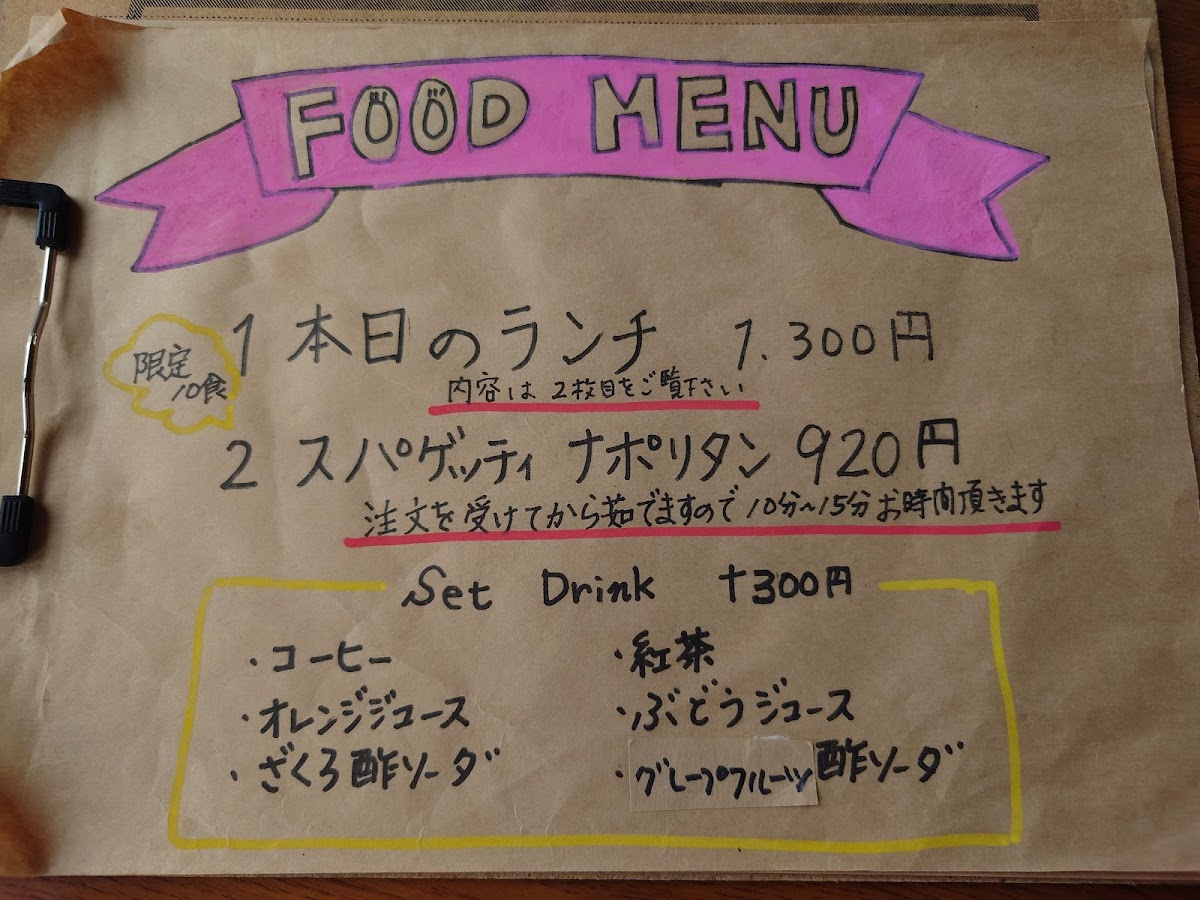 FOOD MENU
限定
10食
1 本日のランチ 1.300円
内容は2枚目をご覧下さい
2 スパゲッティ ナポリタン 920円
注文を受けてから茹でますので10分~15分お時間頂きます
Set Drink +300円
・コーヒー ・紅茶
・オレンジジュース ・ぶどうジュース
・ざくろ酢ソーダ ・グレープフルーツ酢ソーダ